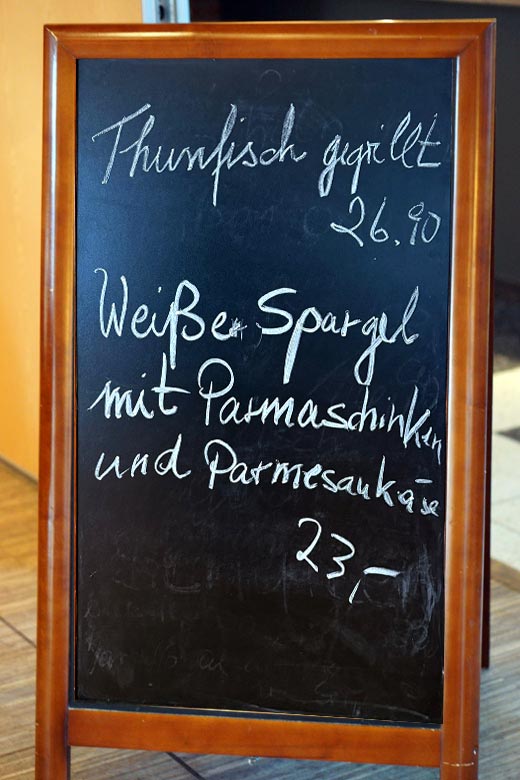 Thunfisch gegrillt
26.90
Weißer Spargel
mit Parmaschinken
und Parmesankäse
23,-